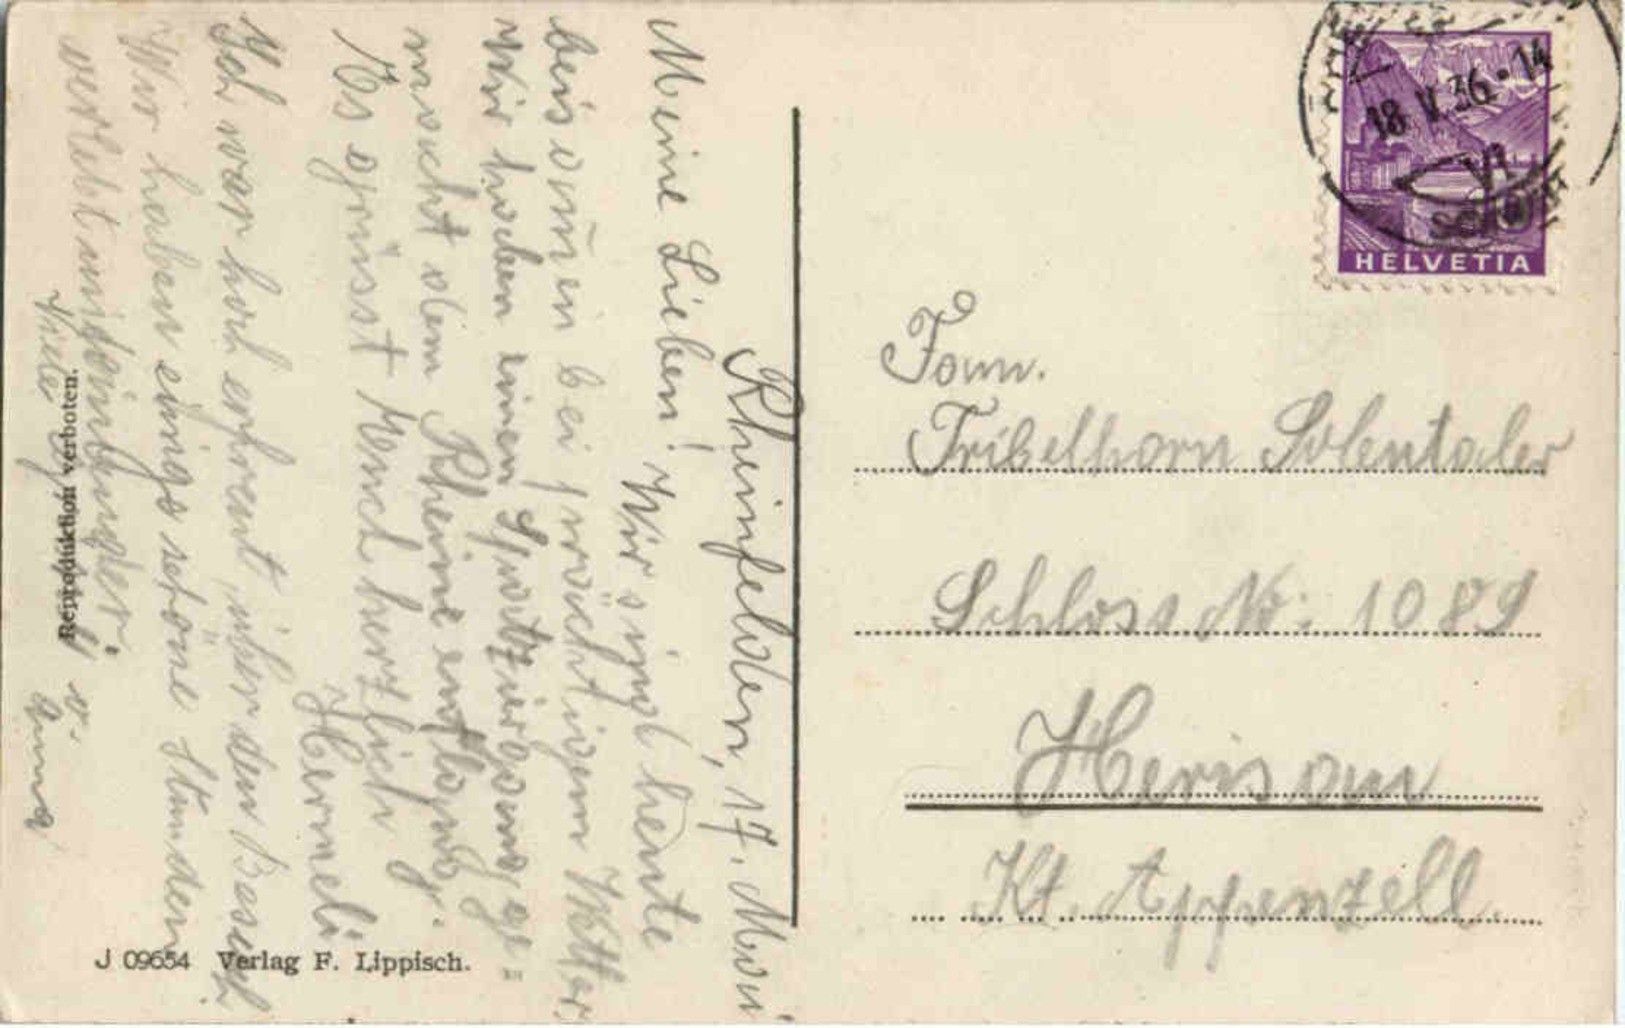 Rheinfelden, 17. Mai
Meine Lieben! Wir sind heute
beisamen bei prächtigem Wetter,
Wir haben einen Spatziergang ge=
macht dem Rheine entlang.
Es grüsst Euch herzlich
Hermeli
Ich war hoch erfreut über den Besuch
Wir haben einige schöne Stunden
verlebt miteinander.
Viele Grüsse v.
Anna
Reproduktion verboten.
J 09654 Verlag F. Lippisch.
18 V. 36 - 14
HELVETIA
Fam.
Tribelhorn Solentaler
Schloss No: 1089
Herisau
Kt. Appenzell.